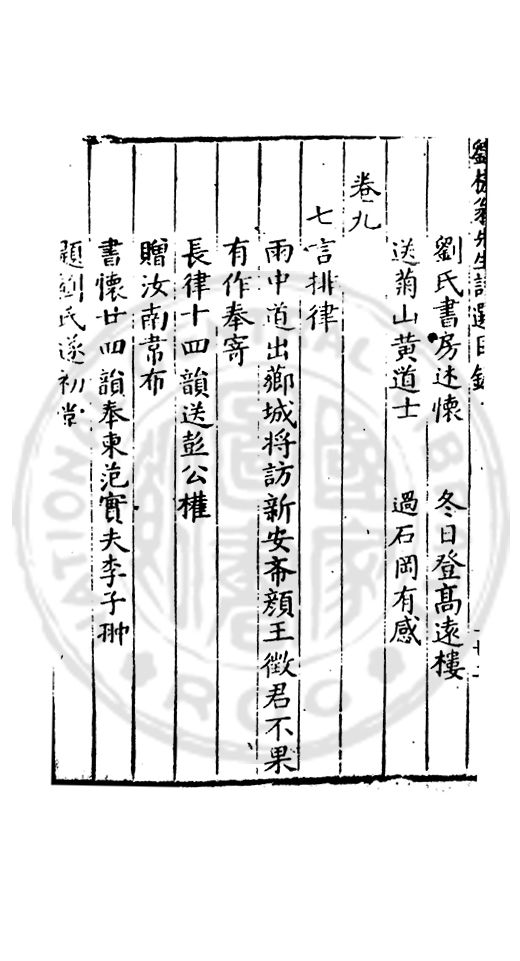 劉槎翁先生詩選目錄
劉氏書房述懷 冬日登高遠樓
送菊山黃道士 過石岡有感
卷九
七言排律
雨中道出薌城将訪新安斎顔王徵君不果
有作奉寄
長律十四韻送彭公權
贈汝南常布
書懷廿四韻奉柬范實夫李子翀
題劉氏遂初堂
NATIONAL CENTRAL
R.O.C